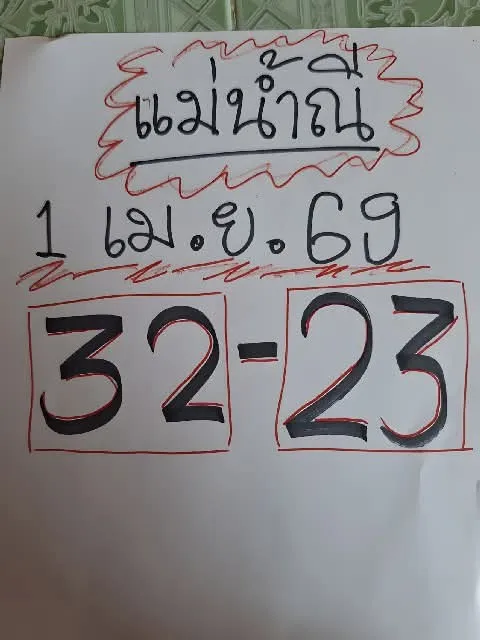 แม่น้ำณี
1 เม.ย. 69
32-23